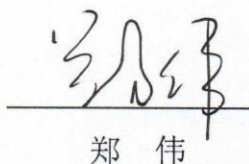 郑伟
郑 伟